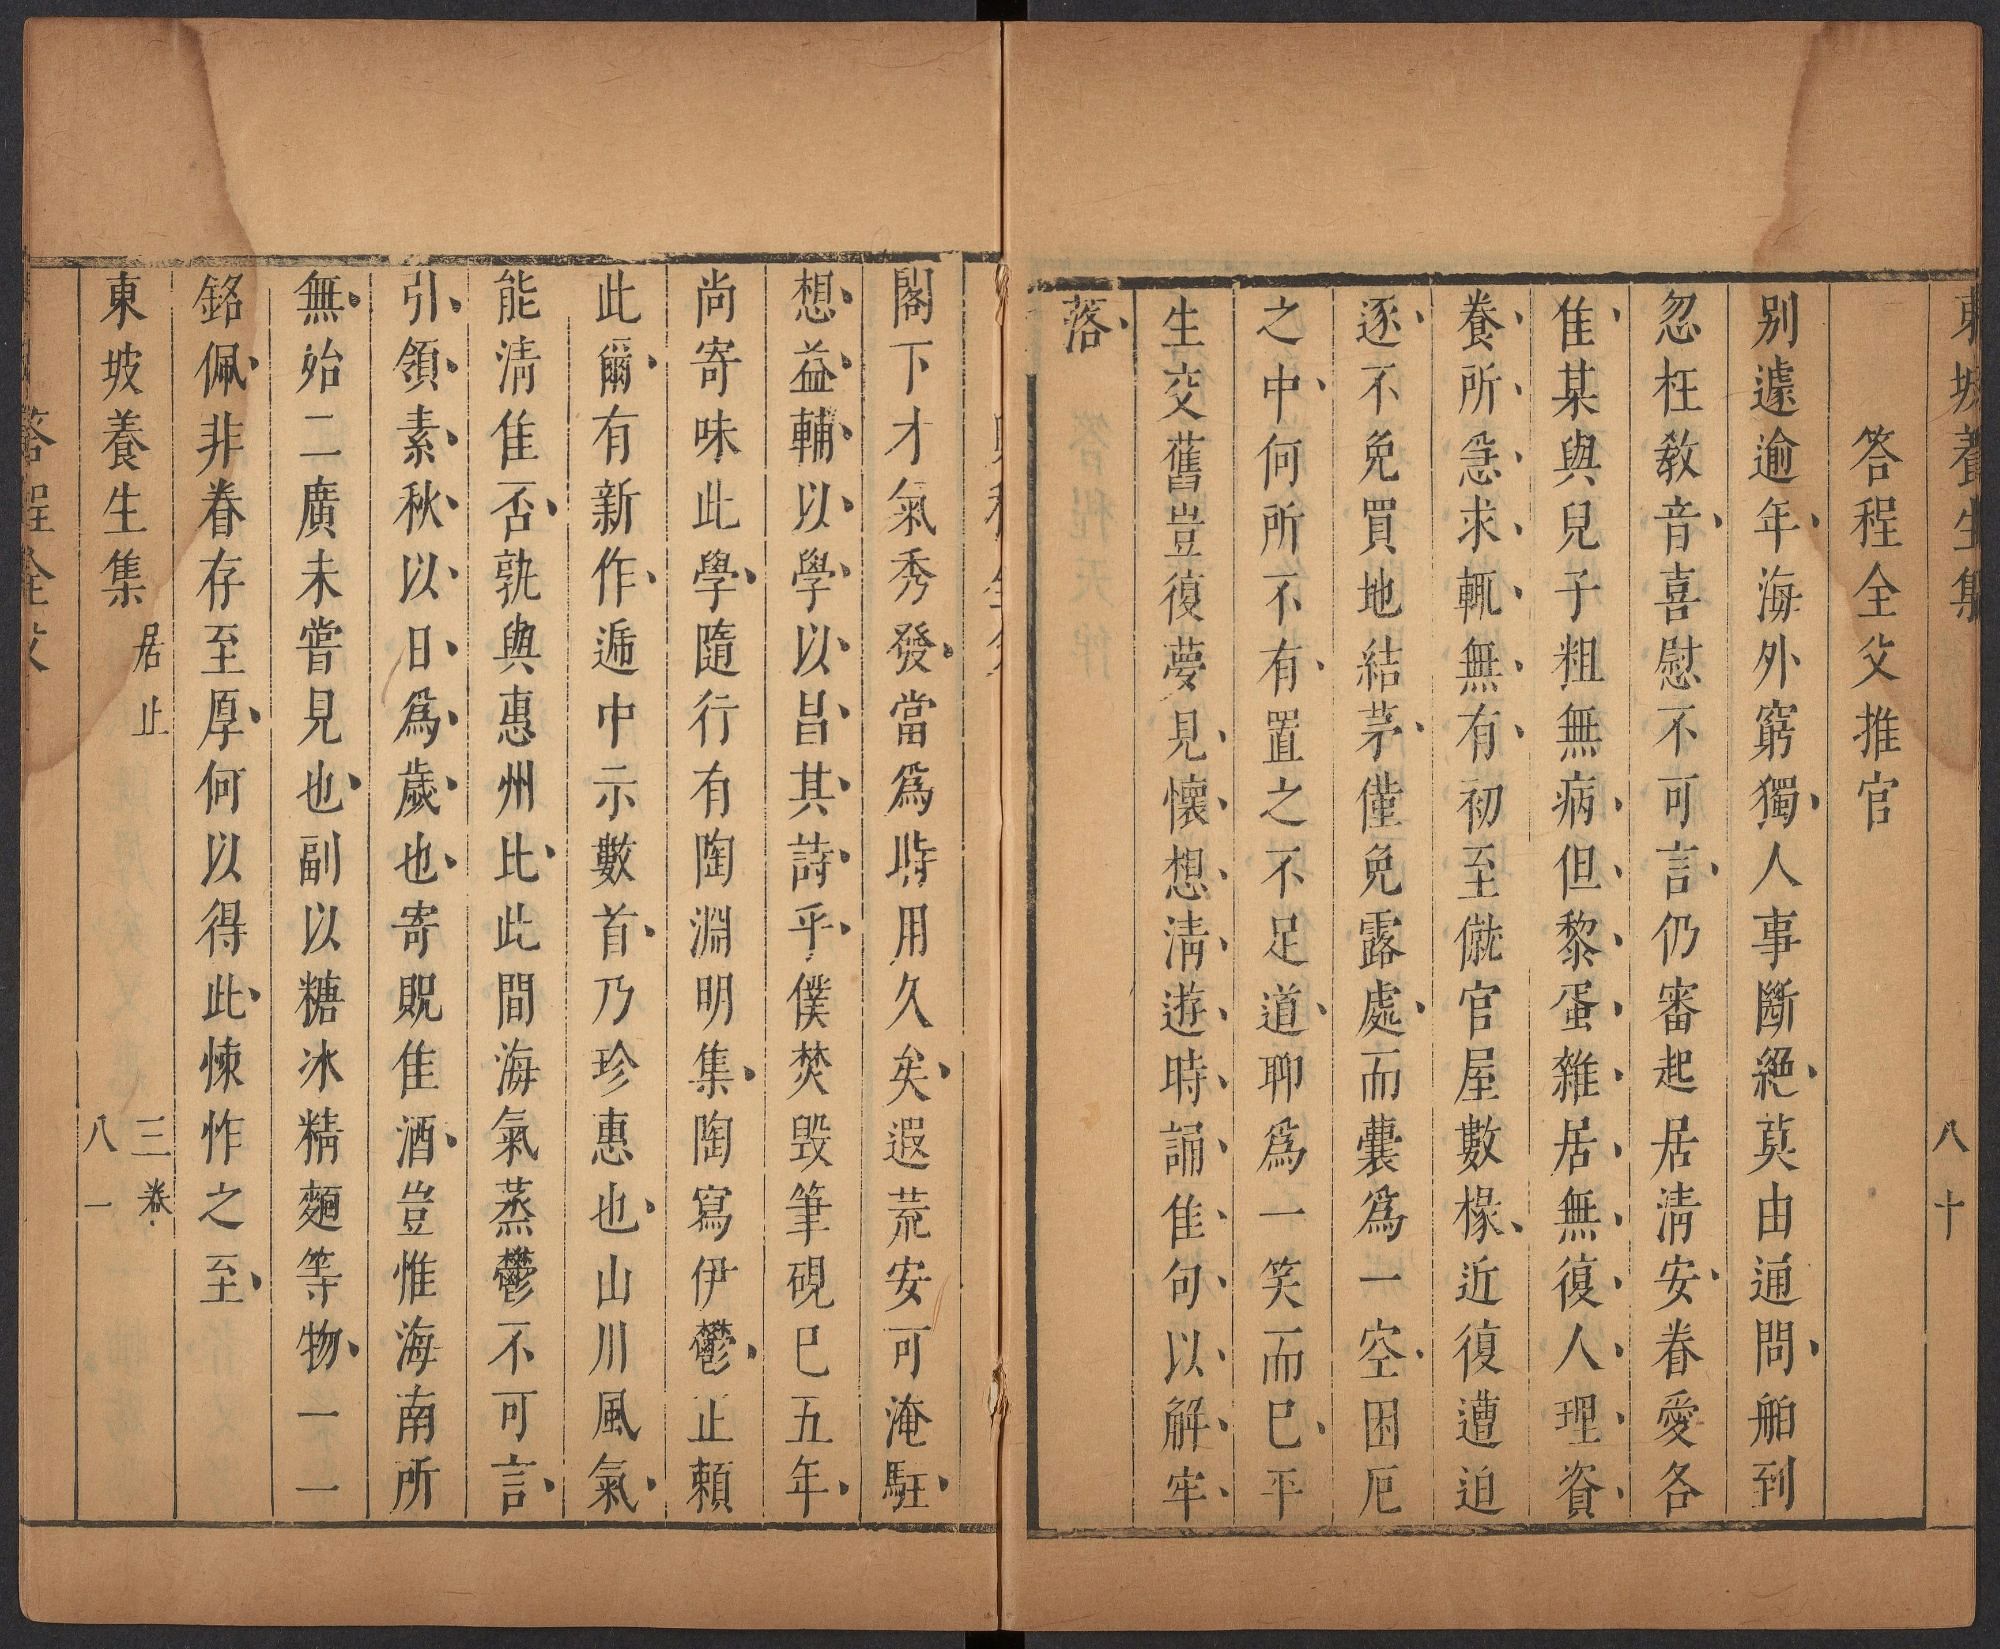 東坡養生集
八十
答程全父推官
別遽逾年海外窮獨人事斷絕莫由通問舶到
忽枉教音喜慰不可言仍審起居淸安眷愛各
佳某與兒子粗無病但黎蜑雜居無復人理資
養所急求輒無有初至僦官屋數椽近復遭迫
逐不免買地結茅僅免露處而囊爲一空困厄
之中何所不有置之不足道聊爲一笑而已平
生交舊豈復夢見懷想淸遊時誦佳句以解牢
落
閣下才氣秀發當爲時用久矣遐荒安可淹駐
想益輔以學以昌其詩乎僕焚毀筆硯已五年
尚寄味此學隨行有陶淵明集陶寫伊鬱止賴
此爾有新作遞中示數首乃珍惠也山川風氣
能淸佳否孰與惠州比此間海氣蒸鬱不可言
引領素秋以日爲歲也寄貺佳酒豈惟海南所
無殆二廣未嘗見也副以糖冰精麵等物一一
銘佩非眷存至厚何以得此悚怍之至
東坡養生集 居止 三卷 八一